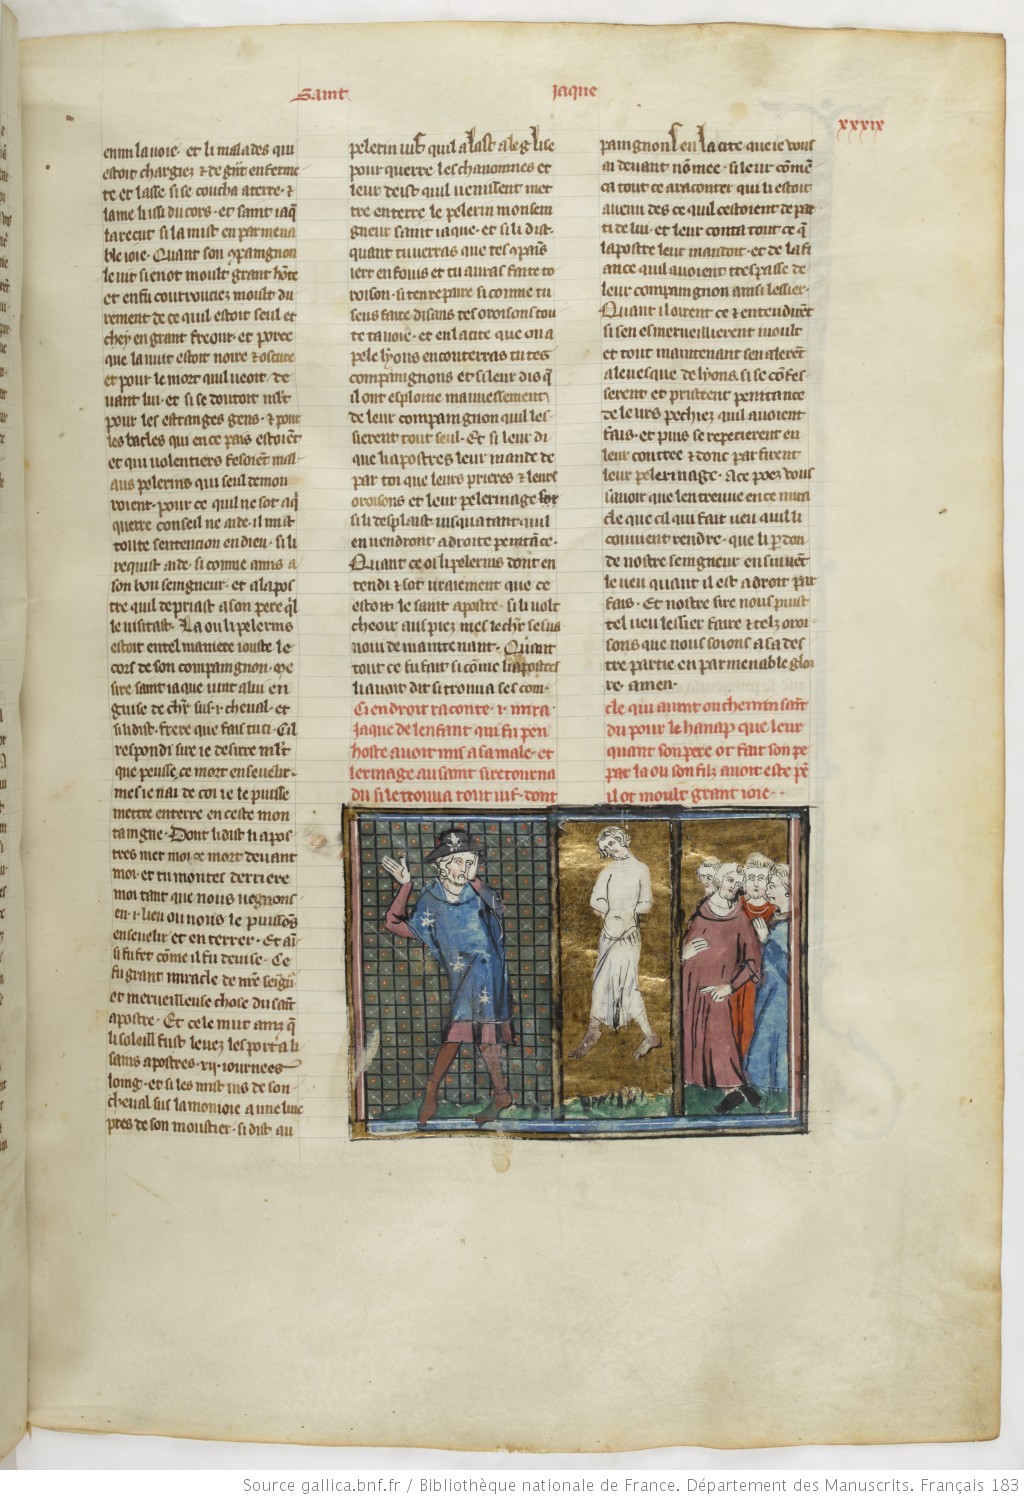 Saint Jaque
xxxix
enmi la voie · et li malades qui
estoit chargiez ⁊ de gnt enferme
te et lasse si se coucha a terre · ⁊
lame li issi du cors · et saint iaq̄
la recut si la mist en parmena
ble ioie · Quant son ꝯpaignon
le vit si en ot moult grant
et en fu courrouciez moult du
rement de ce quil estoit seul et
en grant · et porce
que la nuit estoit noire ⁊ oscure
et pour le mort quil veoit de
uant lui · et si se doutoit mlt
pour les estranges gens · ⁊ pour
les bacles qui en ce pais estoiēt
et qui volentiers fesoiēt mal
aus pelerins qui seul demou
roient · pour ce quil ne sot a q̄
querre conseil ne aide · il mist
toute sentencion en dieu · si li
requist aide · si comme amis a
son bon seingneur · et a lapos
tre quil depriast a son pere q̄l
le visitast · La ou li pelerins
estoit en tel maniere iouste le
cors de son compaignon · Me
sire saint iaque vint a lui en
guise de chr̄ sus · i · cheual · et
si li dist · frere que fais tu ci · Cil
respondi sire ie desirre mlt
que peusse ce mort enseuelir ·
mes ie nai de coi ie le puisse
mettre en terre en ceste mon
taigne · Dont li dist li apos
tres met moi ce mort deuant
moi · et tu montes derriere
moi tant que nous vegnons
en · i · lieu ou nous le puissōs
enseuelir et enterrer · Et aīsi
si fu fet cōme il fu deuise · Ce
fu grant miracle de nr̄e seignr̄
et merueilleuse chose du saīt
apostre · Et cele nuit ainz q̄
li soleill fust leuez les porta li
sains apostres · xij · iournees
loing · et si les mist ius de son
cheual sus la monioie a une liue
pres de son moustier · si dist au
pelerin vif quil alast a leglise
pour querre les chanoinnes et
leur deist quil venissent met
tre en terre le pelerin monsein
gneur saint iaque · et si li dist ·
quant tu verras que tes ꝯpaīs
iert enfouis et tu auras faite to
roison · si ten repaire si comme tu
seus faire disans tes oroisons tou
te ta voie · et en la cite que on a
pele lyons encouterras tu tes
compaignons et si leur dis q̄
il ont esploitie mauuessement
de leur compaignon quil les
sierent tout seul · Et si leur di
que li apostres leur mande de
par toi que leurs prieres ⁊ leurs
oroisons et leur pelerinage
si li desplaist iusqua tant quil
en vendront a droite penitāce ·
Quant ce oi li pelerins dont en
tendi ⁊ sot vraiement que ce
estoit · le saint apostre · si li volt
cheoir aus piez mes le chr̄ sesua
noui de maintenant · Quant
tout ce fu fait si cōme li apostres
li auoit dit si trouua ses com
paingnons en la cite que ie vous
ai deuant nōmee · si leur cōmē
ca tout ce a raconter qui li estoit
auenu des ce quil cestoient de par
ti de lui · et leur conta tout ce q̄
lapostre leur mandoit · et de la fi
ance quil auoient trespasse de
leur compaingnon ainsi lessier ·
Quant il oirent ce ⁊ entendirēt
si sen esmerueillierent moult
et tout maintenant sen alerēt
a leuesque de lyons · si se cōfes
serent et pristrent penitance
de leurs pechiez quil auoient
fais · et puis se reperierent en
leur contree ⁊ donc par firent
leur pelerinage · A ce poez vous
sauoir que len treuue en ce mira
cle que cil qui fait veu quil li
couuient rendre · que li ꝑdon
de nostre seingneur ensiuuēt
le veu quant il est a droit par
fais · Et nostre sire nous puist
tel veu lessier faire ⁊ telz oroi
sons que nous soions a sa des
tre partie en parmenable gloi
re · amen ·
Ci endroit raconte · i · mira
cle qui auint ou chemin saīt
Jaque de lenfant qui fu pen
du pour le hanap que leur
hoste auoit mis a sa male · et
quant son pere ot fait son pe
lerinage au saint si retourna
par la ou son filz auoit este pē
du si le trouua tout vif · dont
il ot moult grant ioie · ·
Source gallica.bnf.fr / Bibliothèque nationale de France. Département des Manuscrits. Français 183